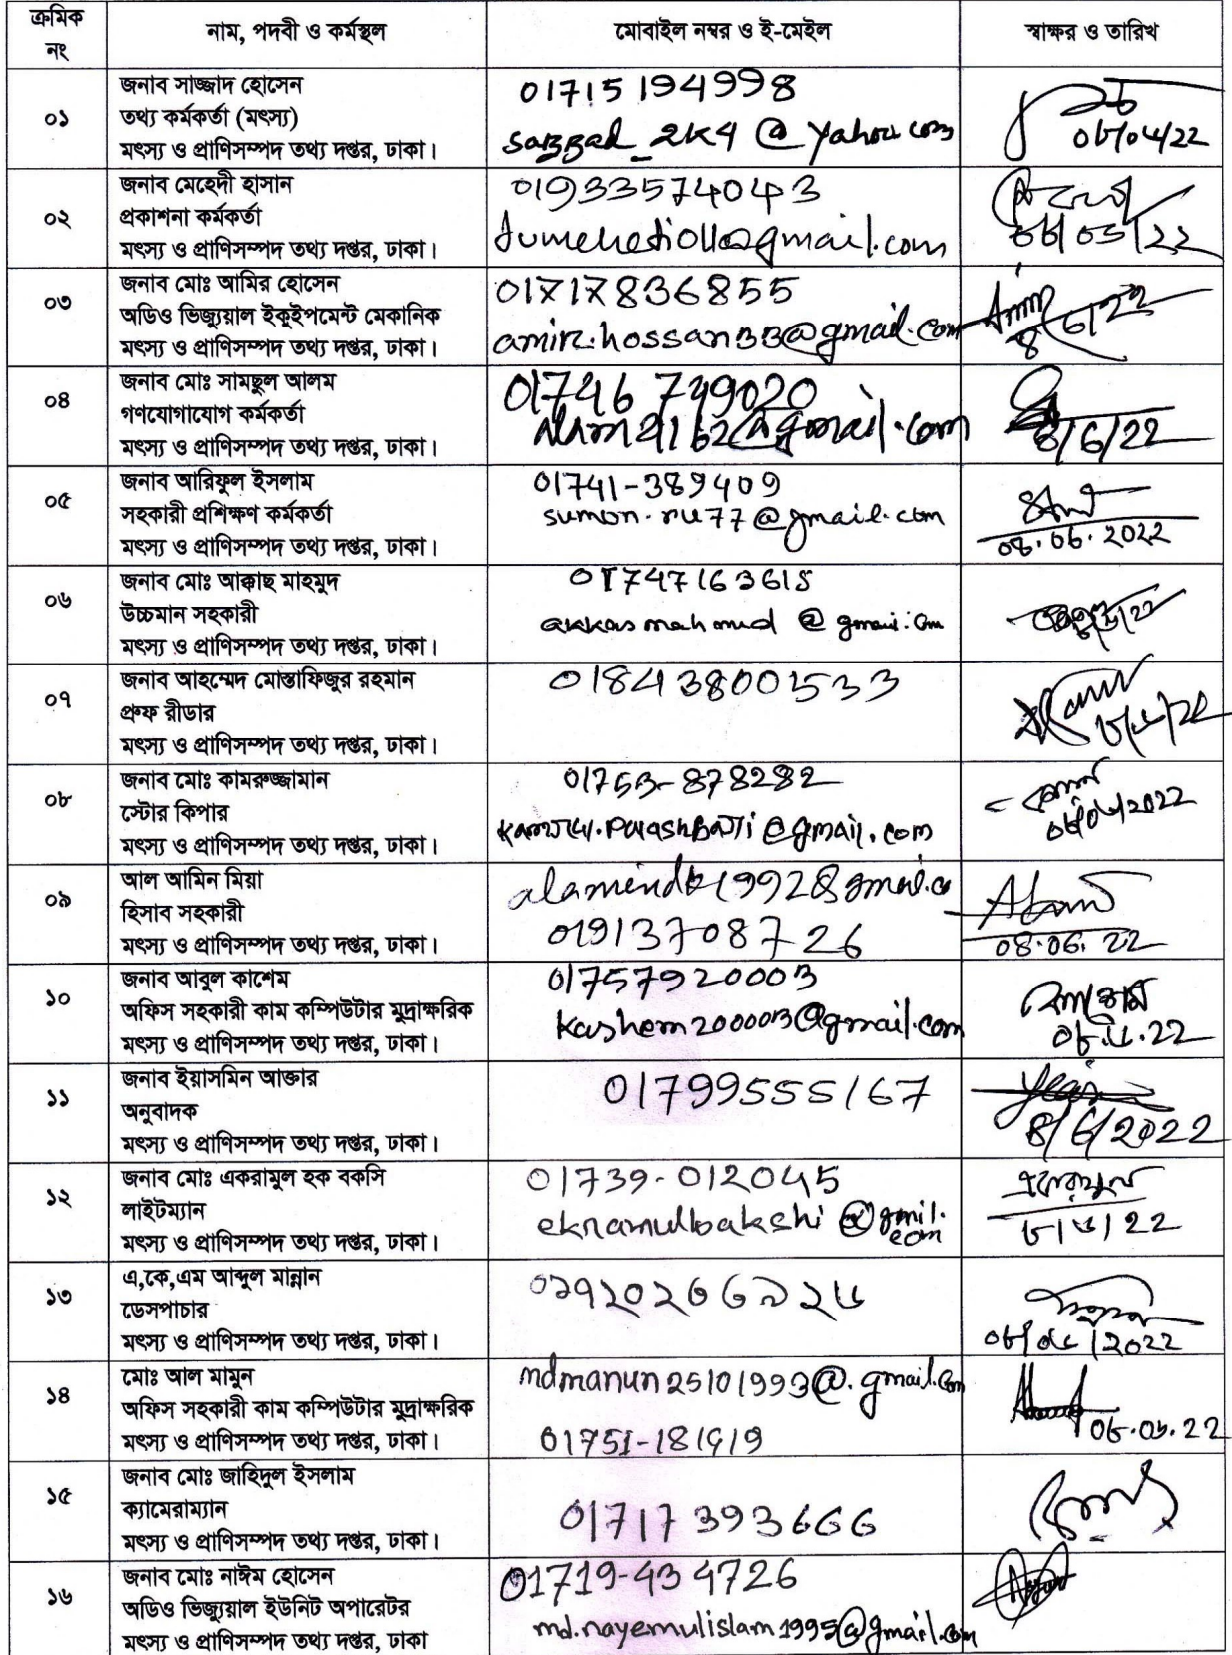 ক্রমিক নং
নাম, পদবী ও কর্মস্থল
মোবাইল নম্বর ও ই-মেইল
স্বাক্ষর ও তারিখ
০১
জনাব সাজ্জাদ হোসেন
তথ্য কর্মকর্তা (মৎস্য)
মৎস্য ও প্রাণিসম্পদ তথ্য দপ্তর, ঢাকা।
01715194998
sazzad_2k4@yahoo.com
০২
জনাব মেহেদী হাসান
প্রকাশনা কর্মকর্তা
মৎস্য ও প্রাণিসম্পদ তথ্য দপ্তর, ঢাকা।
01933574043
০৩
জনাব মোঃ আমির হোসেন
অডিও ভিজ্যুয়াল ইকূইপমেন্ট মেকানিক
মৎস্য ও প্রাণিসম্পদ তথ্য দপ্তর, ঢাকা।
01717836855
amir.hossan33@gmail.com
8/6/22
০৪
জনাব মোঃ সামছুল আলম
গণযোগাযোগ কর্মকর্তা
মৎস্য ও প্রাণিসম্পদ তথ্য দপ্তর, ঢাকা।
01746749020
alam2162@gmail.com
8/6/22
০৫
জনাব আরিফুল ইসলাম
সহকারী প্রশিক্ষণ কর্মকর্তা
মৎস্য ও প্রাণিসম্পদ তথ্য দপ্তর, ঢাকা।
01741-389409
sumon.ru77@gmail.com
08.06.2022
০৬
জনাব মোঃ আক্কাছ মাহমুদ
উচ্চমান সহকারী
মৎস্য ও প্রাণিসম্পদ তথ্য দপ্তর, ঢাকা।
01747163615
akkasmahmud@gmail.com
০৭
জনাব আহম্মেদ মোস্তাফিজুর রহমান
প্রুফ রীডার
মৎস্য ও প্রাণিসম্পদ তথ্য দপ্তর, ঢাকা।
018438001533
০৮
জনাব মোঃ কামরুজ্জামান
স্টোর কিপার
মৎস্য ও প্রাণিসম্পদ তথ্য দপ্তর, ঢাকা।
01753-878282
০৯
আল আমিন মিয়া
হিসাব সহকারী
মৎস্য ও প্রাণিসম্পদ তথ্য দপ্তর, ঢাকা।
01913708726
08.06.22
১০
জনাব আবুল কাশেম
অফিস সহকারী কাম কম্পিউটার মুদ্রাক্ষরিক
মৎস্য ও প্রাণিসম্পদ তথ্য দপ্তর, ঢাকা।
01757920003
kashem200003@gmail.com
কাশেম
০৮.৬.22
১১
জনাব ইয়াসমিন আক্তার
অনুবাদক
মৎস্য ও প্রাণিসম্পদ তথ্য দপ্তর, ঢাকা।
01799555167
8/6/2022
১২
জনাব মোঃ একরামুল হক বকসি
লাইটম্যান
মৎস্য ও প্রাণিসম্পদ তথ্য দপ্তর, ঢাকা।
01739-012045
ekramulbakshi@gmil.com
একরামুল
৮/৬/22
১৩
এ,কে,এম আব্দুল মান্নান
ডেসপাচার
মৎস্য ও প্রাণিসম্পদ তথ্য দপ্তর, ঢাকা।
০৮/০৬/2022
১৪
মোঃ আল মামুন
অফিস সহকারী কাম কম্পিউটার মুদ্রাক্ষরিক
মৎস্য ও প্রাণিসম্পদ তথ্য দপ্তর, ঢাকা।
mdmanun25101993@.gmail.com
01751-181919
০৮.০৬.22
১৫
জনাব মোঃ জাহিদুল ইসলাম
ক্যামেরাম্যান
মৎস্য ও প্রাণিসম্পদ তথ্য দপ্তর, ঢাকা।
01717393666
১৬
জনাব মোঃ নাঈম হোসেন
অডিও ভিজ্যুয়াল ইউনিট অপারেটর
মৎস্য ও প্রাণিসম্পদ তথ্য দপ্তর, ঢাকা
01719-434726
md.nayemulislam1995@gmail.com